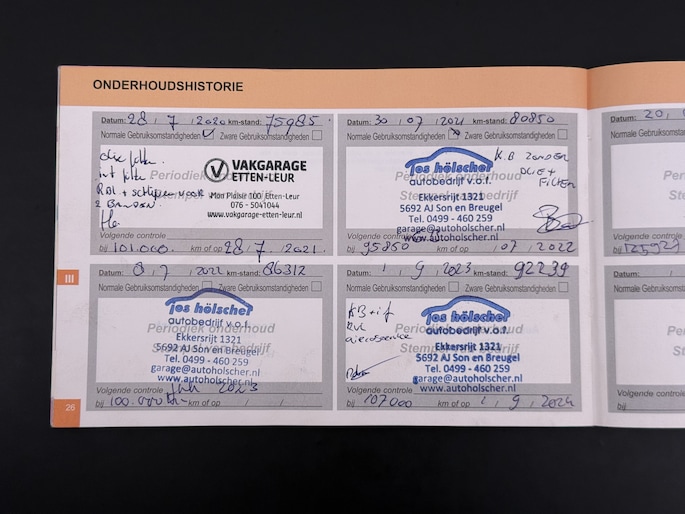 ONDERHOUDSHISTORIE
Datum: 28 / 7 / 2020 km-stand: 75985
Normale Gebruiksomstandigheden Zware Gebruiksomstandigheden
olie filter
int filter
2 BANDEN.
Periodiek onderhoud
VAKGARAGE
ETTEN-LEUR
Mon Plaisir 100, Etten-Leur
076 - 5041044
www.vakgarage-etten-leur.nl
Volgende controle
bij 101.000. km of op 28 / 7 / 2021.
Datum: 30 / 07 / 2021 km-stand: 80850
Normale Gebruiksomstandigheden Zware Gebruiksomstandigheden
K.B ZONDER
OLIE +
FILTER
Periodiek onderhoud
jos hölscher
autobedrijf v.o.f.
Ekkersrijt 1321
5692 AJ Son en Breugel
Tel. 0499 - 460 259
garage@autoholscher.nl
www.autoholscher.nl
Volgende controle
bij 95850 km of op / 07 / 2022
Datum: 8 / 7 / 2022 km-stand: 86312
Normale Gebruiksomstandigheden Zware Gebruiksomstandigheden
jos hölscher
autobedrijf v.o.f.
Periodiek onderhoud
Ekkersrijt 1321
5692 AJ Son en Breugel
Tel. 0499 - 460 259
garage@autoholscher.nl
www.autoholscher.nl
Volgende controle Juli 2023
bij 100.000 km km of op / /
Datum: 1 / 9 / 2023 km-stand: 92239
Normale Gebruiksomstandigheden Zware Gebruiksomstandigheden
KB + if
jos hölscher
autobedrijf v.o.f.
Periodiek onderhoud
Ekkersrijt 1321
5692 AJ Son en Breugel
aircoservice
Tel. 0499 - 460 259
garage@autoholscher.nl
www.autoholscher.nl
Volgende controle
bij 107000 km of op 1 / 9 / 2024
Datum: 20 /
Normale Gebruiksoms
Volgende controle
bij
Datum: /
Normale Gebruiksoms
Volgende controle
bij
III
26